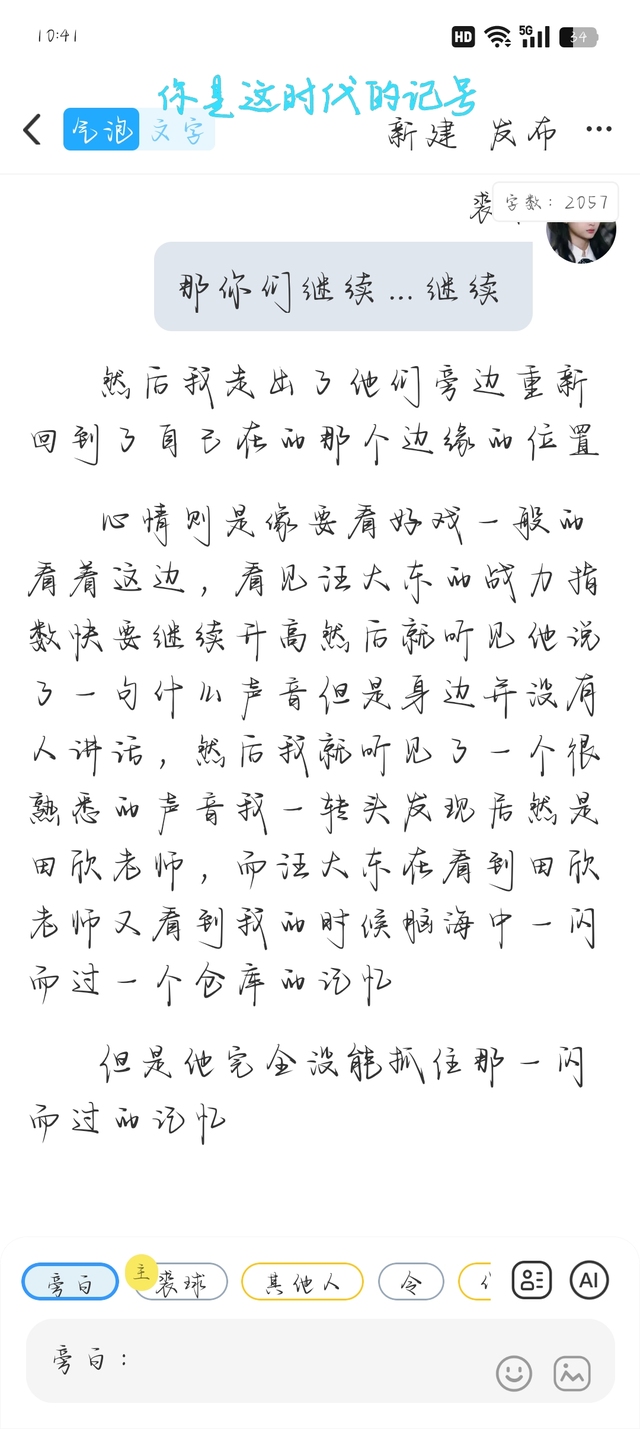 10:41
HD 5G 34
你是这时代的记号
气泡 文字 新建 发布 ...
裘
字数：2057
那你们继续...继续
然后我走出了他们旁边重新
回到了自己在的那个边缘的位置
心情则是像要看好戏一般的
看着这边，看见汪大东的战力指
数快要继续升高然后就听见他说
了一句什么声音但是身边并没有
人讲话，然后我就听见了一个很
熟悉的声音我一转头发现居然是
田欣老师，而汪大东在看到田欣
老师又看到我的时候脑海中一闪
而过一个仓库的记忆
但是他完全没能抓住那一闪
而过的记忆
旁白 主 裘球 其他人 令 AI
旁白：